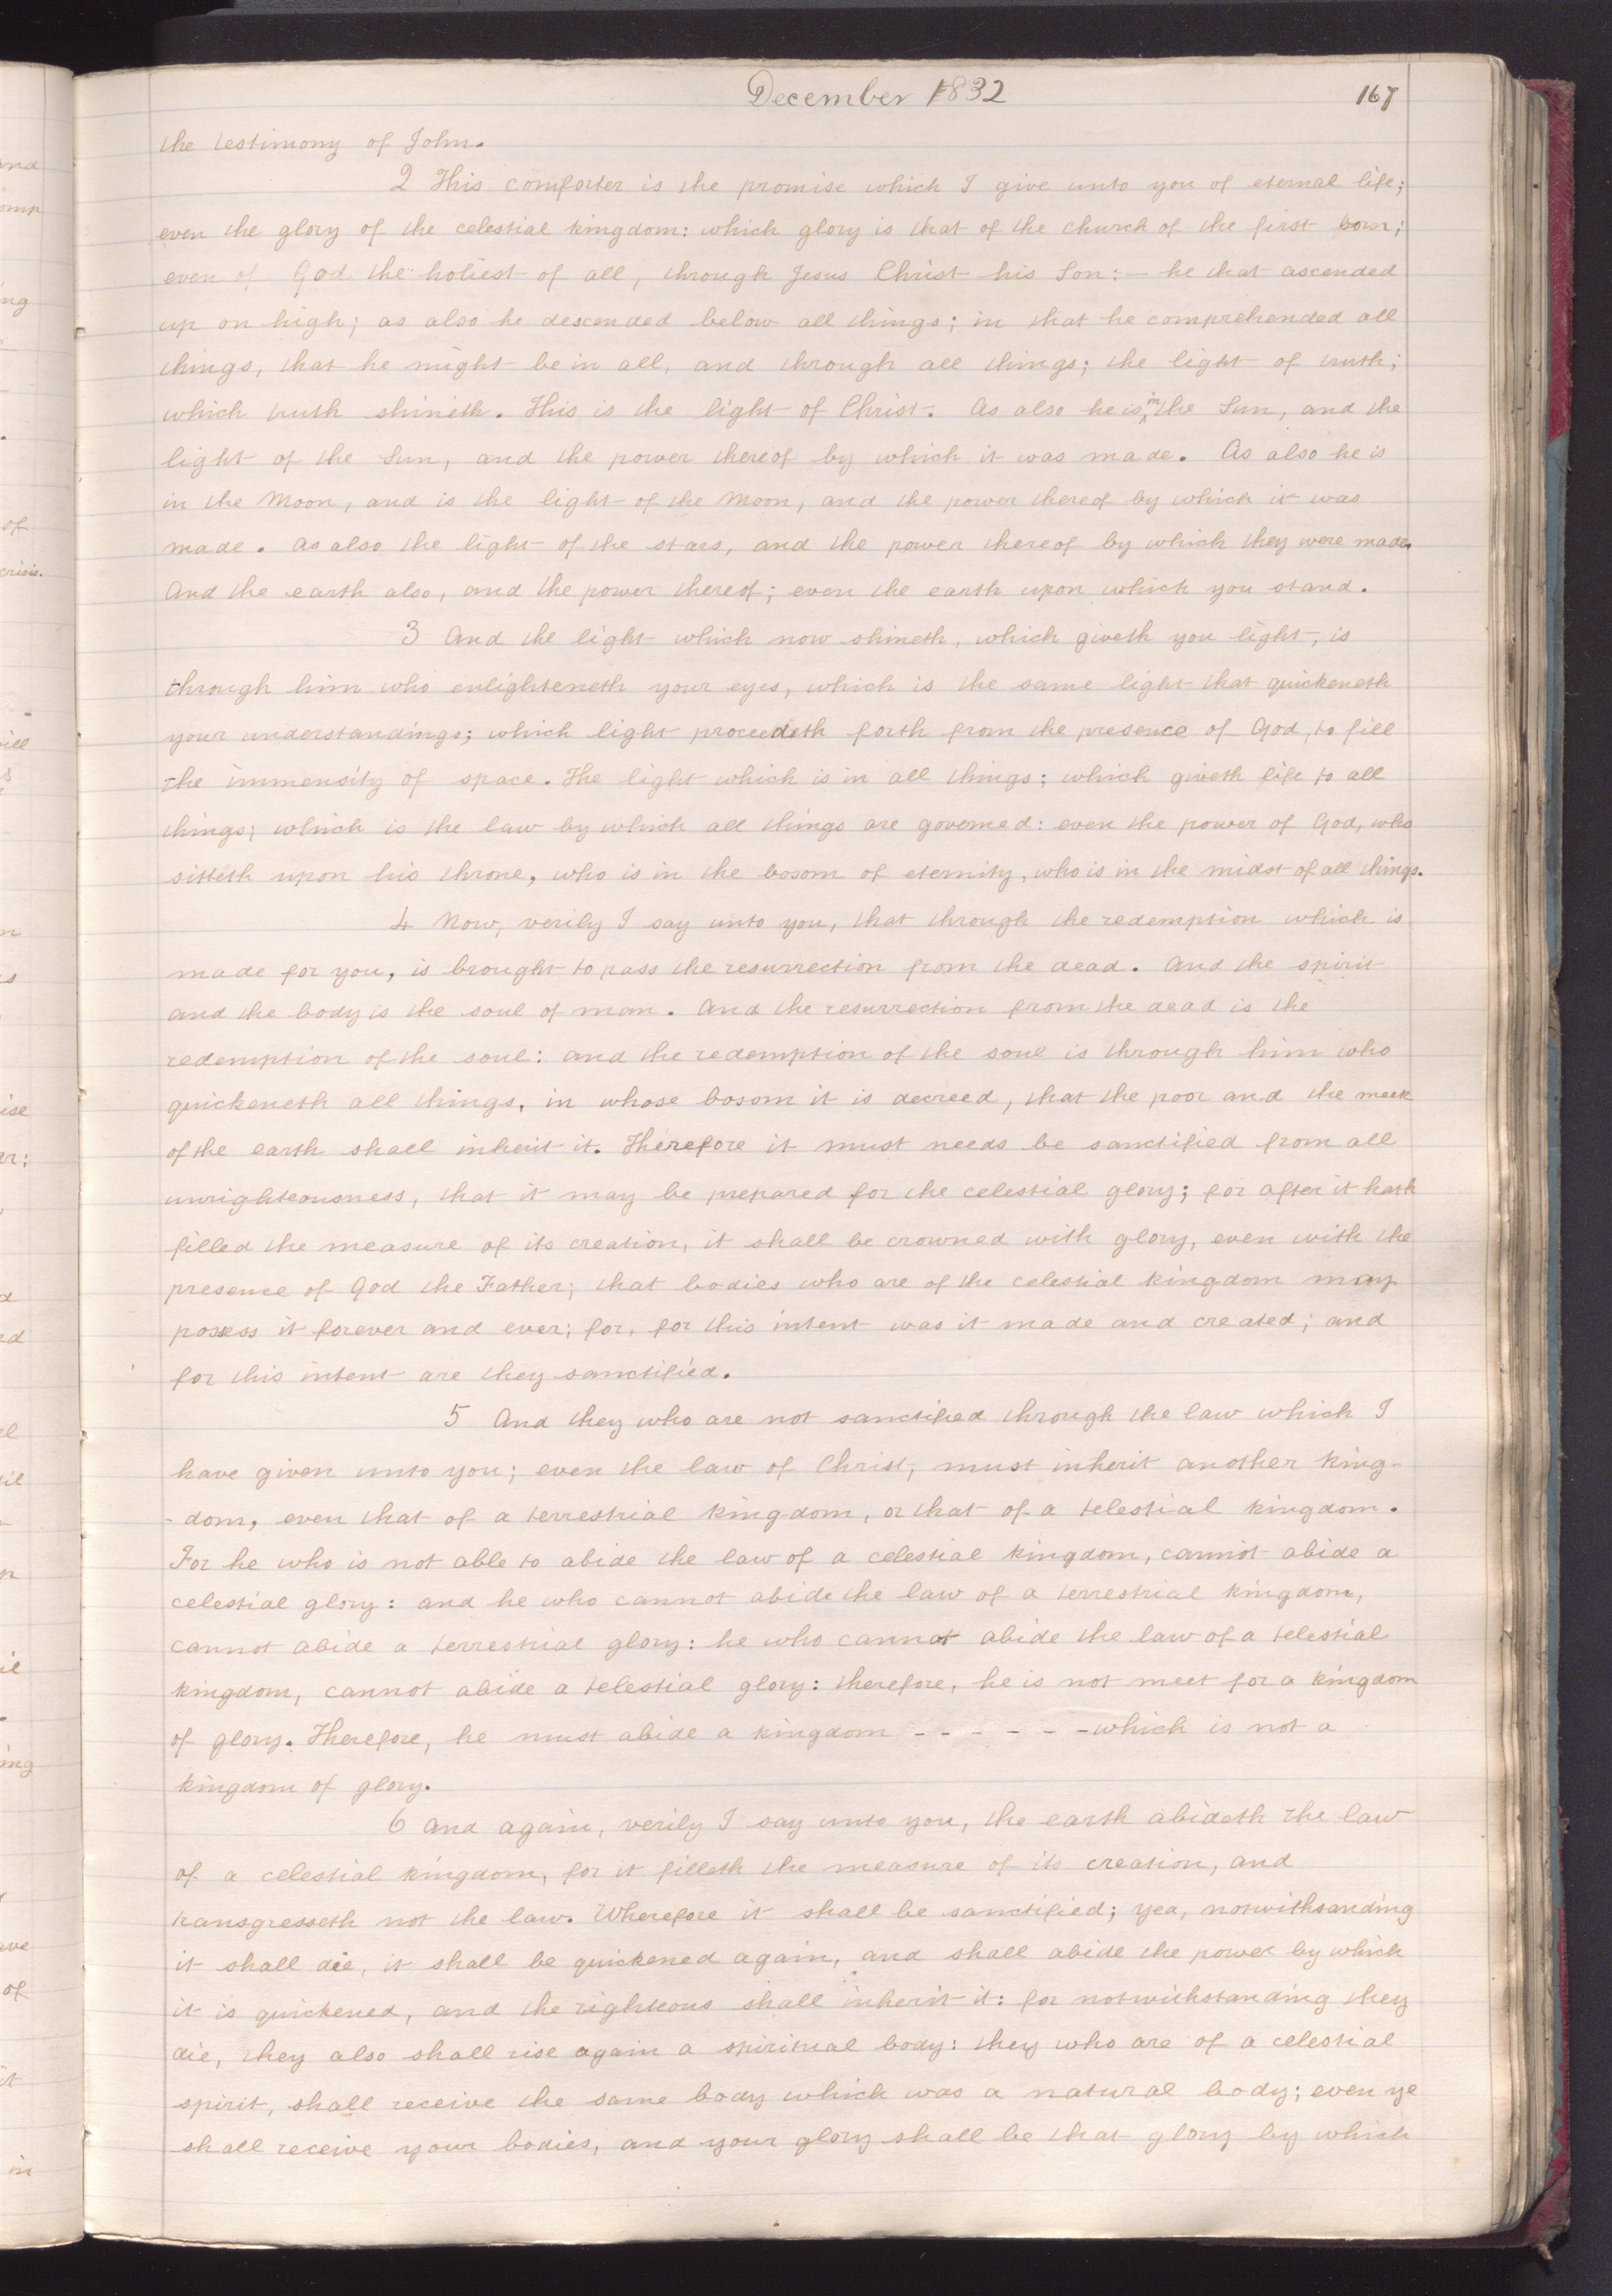 December 1832 167
the testimony of John.
2 This comforter is the promise which I give unto you of eternal life;
even the glory of the celestial kingdom: which glory is that of the church of the first born;
even of God the holiest of all, through Jesus Christ his Son:— he that ascended
up on high; as also he descended below all things; in that he comprehended all
things, that he might be in all, and through all things; the light of truth;
which truth shineth. This is the light of Christ. As also he is in the Sun, and the
light of the Sun, and the power thereof by which it was made. As also he is
in the Moon, and is the light of the Moon, and the power thereof by which it was
made. As also the light of the stars, and the power thereof by which they were made.
And the earth also, and the power thereof; even the earth upon which you stand.
3 And the light which now shineth, which giveth you light, is
through him who enlighteneth your eyes, which is the same light that quickeneth
your understandings; which light proceedeth forth from the presence of God, to fill
the immensity of space. The light which is in all things; which giveth life to all
things; which is the law by which all things are governed: even the power of God, who
sitteth upon his throne, who is in the bosom of eternity, who is in the midst of all things.
4 Now, verily I say unto you, that through the redemption which is
made for you, is brought to pass the resurrection from the dead. And the spirit
and the body is the soul of man. And the resurrection from the dead is the
redemption of the soul: and the redemption of the soul is through him who
quickeneth all things, in whose bosom it is decreed, that the poor and the meek
of the earth shall inherit it. Therefore it must needs be sanctified from all
unrighteousness, that it may be prepared for the celestial glory; for after it hath
filled the measure of its creation, it shall be crowned with glory, even with the
presence of God the Father; that bodies who are of the celestial kingdom may
possess it forever and ever; for, for this intent was it made and created; and
for this intent are they sanctified.
5 And they who are not sanctified through the law which I
have given unto you; even the law of Christ, must inherit another king-
-dom, even that of a terrestrial kingdom, or that of a telestial kingdom.
For he who is not able to abide the law of a celestial kingdom, cannot abide a
celestial glory: and he who cannot abide the law of a terrestrial kingdom,
cannot abide a terrestrial glory: he who cannot abide the law of a telestial
kingdom, cannot abide a telestial glory: therefore, he is not meet for a kingdom
of glory. Therefore, he must abide a kingdom - - - - - - which is not a
kingdom of glory.
6 And again, verily I say unto you, the earth abideth the law
of a celestial kingdom, for it filleth the measure of its creation, and
transgresseth not the law. Wherefore it shall be sanctified; yea, notwithsanding
it shall die, it shall be quickened again, and shall abide the power by which
it is quickened, and the righteous shall inherit it: for notwithstanding they
die, they also shall rise again a spiritual body: they who are of a celestial
spirit, shall receive the same body which was a natural body; even ye
shall receive your bodies, and your glory shall be that glory by which